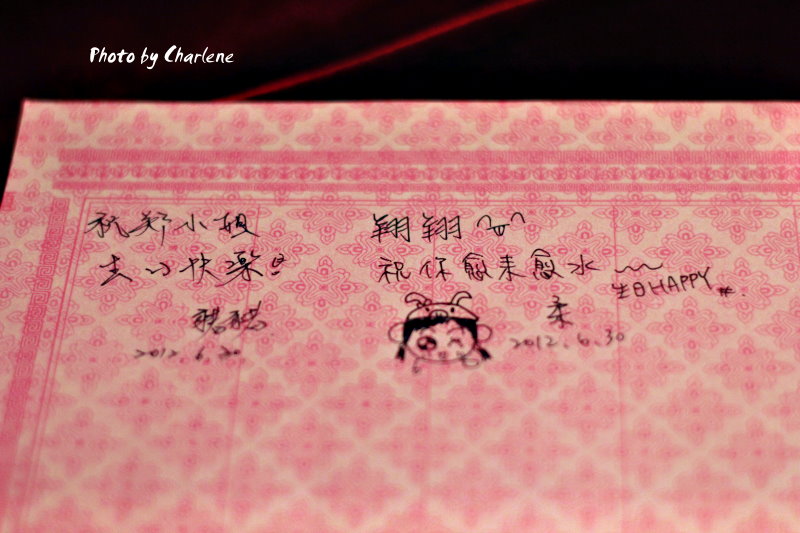 Photo by Charlene
祝郑小姐
生日快樂
2012.6.30
翔翔
祝你愈来愈水
生日HAPPY
柔
2012.6.30